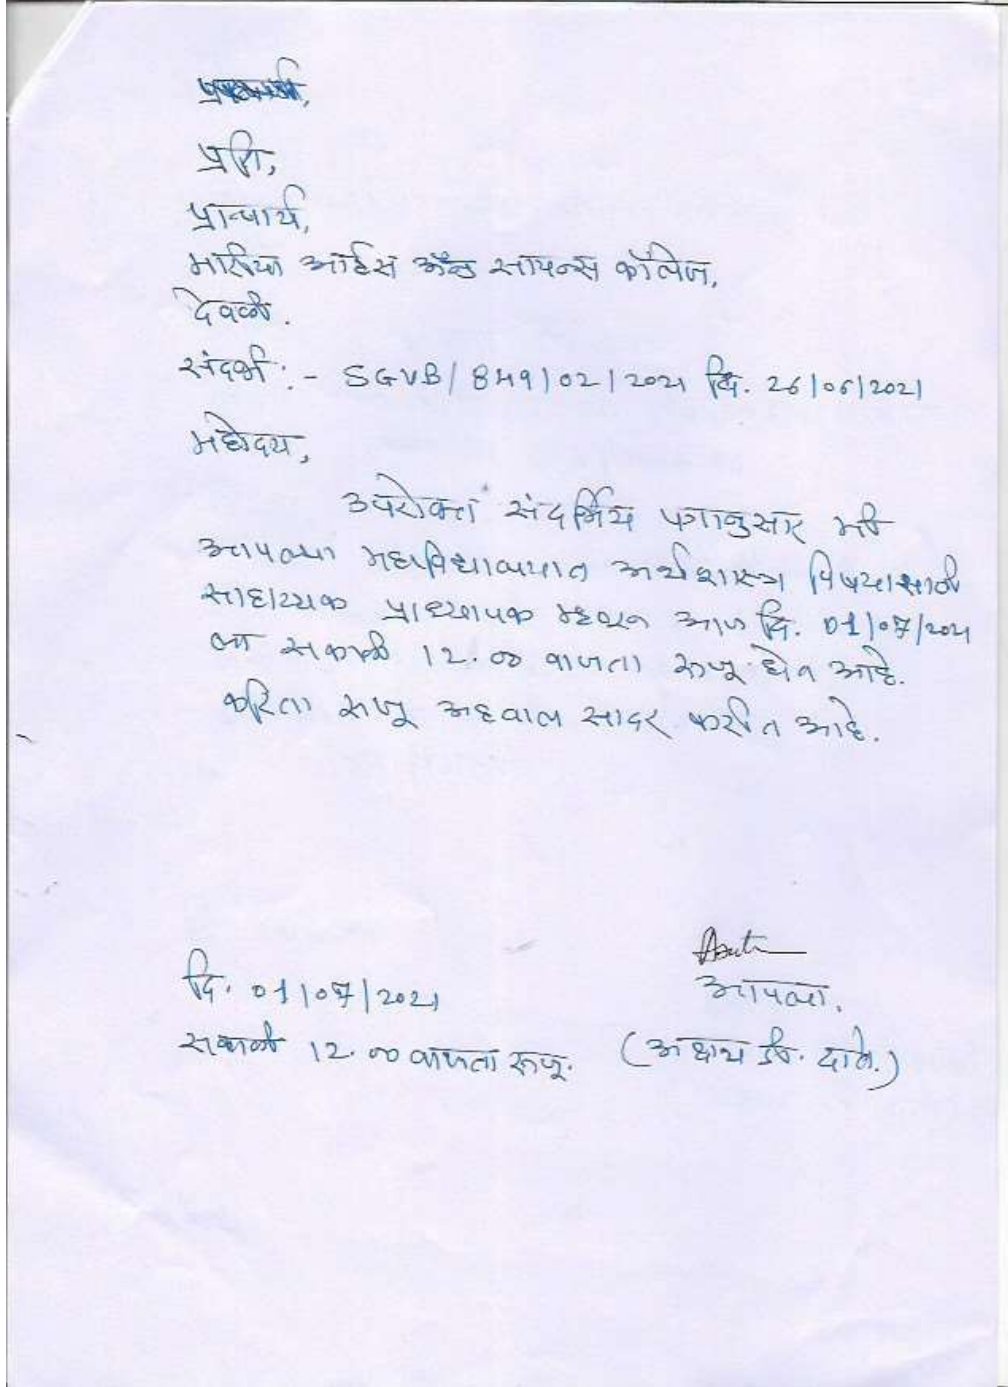 प्रति,
प्राचार्य,
आर्टस अँड सायन्स कॉलेज,
देवळी.
संदर्भ :- SGVB/849/02/2021 दि. 26/06/2021
महोदय,
उपरोक्त संदर्भिय पत्रानुसार मी
आपल्या महाविद्यालयात अर्थशास्त्र विषयासाठी
साहाय्यक प्राध्यापक म्हणून आज दि. 01/07/2021
ला सकाळी 12.00 वाजता रूजू होत आहे.
करिता रूजू अहवाल सादर करीत आहे.
आपला,
दि. 01/07/2021
सकाळी 12.00 वाजता रूजू. (अक्षय डी.